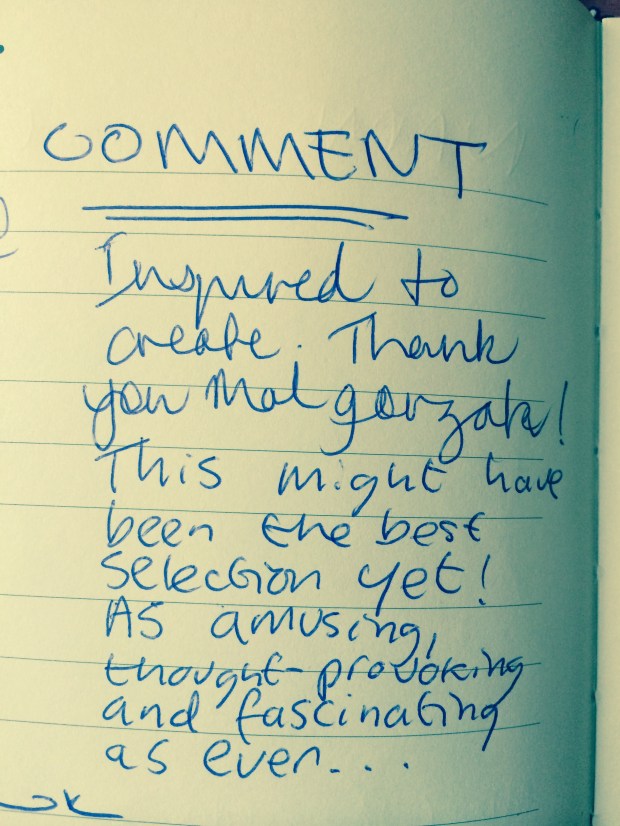 COMMENT
Inspired to
create. Thank
you Malgorzata!
This might have
been the best
selection yet!
As amusing,
thought-provoking
and fascinating
as ever...